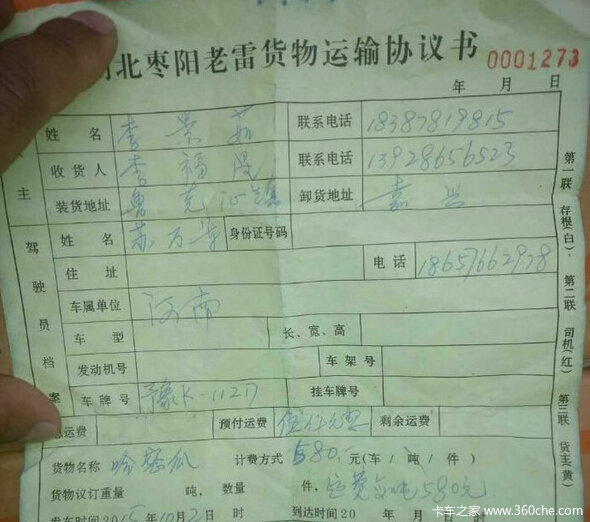 北枣阳老雷货物运输协议书 0001273
年 月 日
主 姓名 李景茹 联系电话 18387819815
收货人 李福 联系电话 13928656523
装货地址 鲁克沁镇 卸货地址 嘉兴
驾驶员档案 姓名 苏万 身份证号码
住址 电话 18657662978
车属单位 河南
车型 长、宽、高
发动机号 车架号
车牌号 豫K-112 挂车牌号
总运费 预付运费 伍仟元 剩余运费
货物名称 哈密瓜 计费方式 580 元(车/吨/件)
货物议订重量 吨,数量 件,运费每吨580元
发车时间2015年10月2日 到达时间20 年 月
第一联 存根(白) 第二联 司机(红) 第三联 货主(黄)
卡车之家 www.360che.com